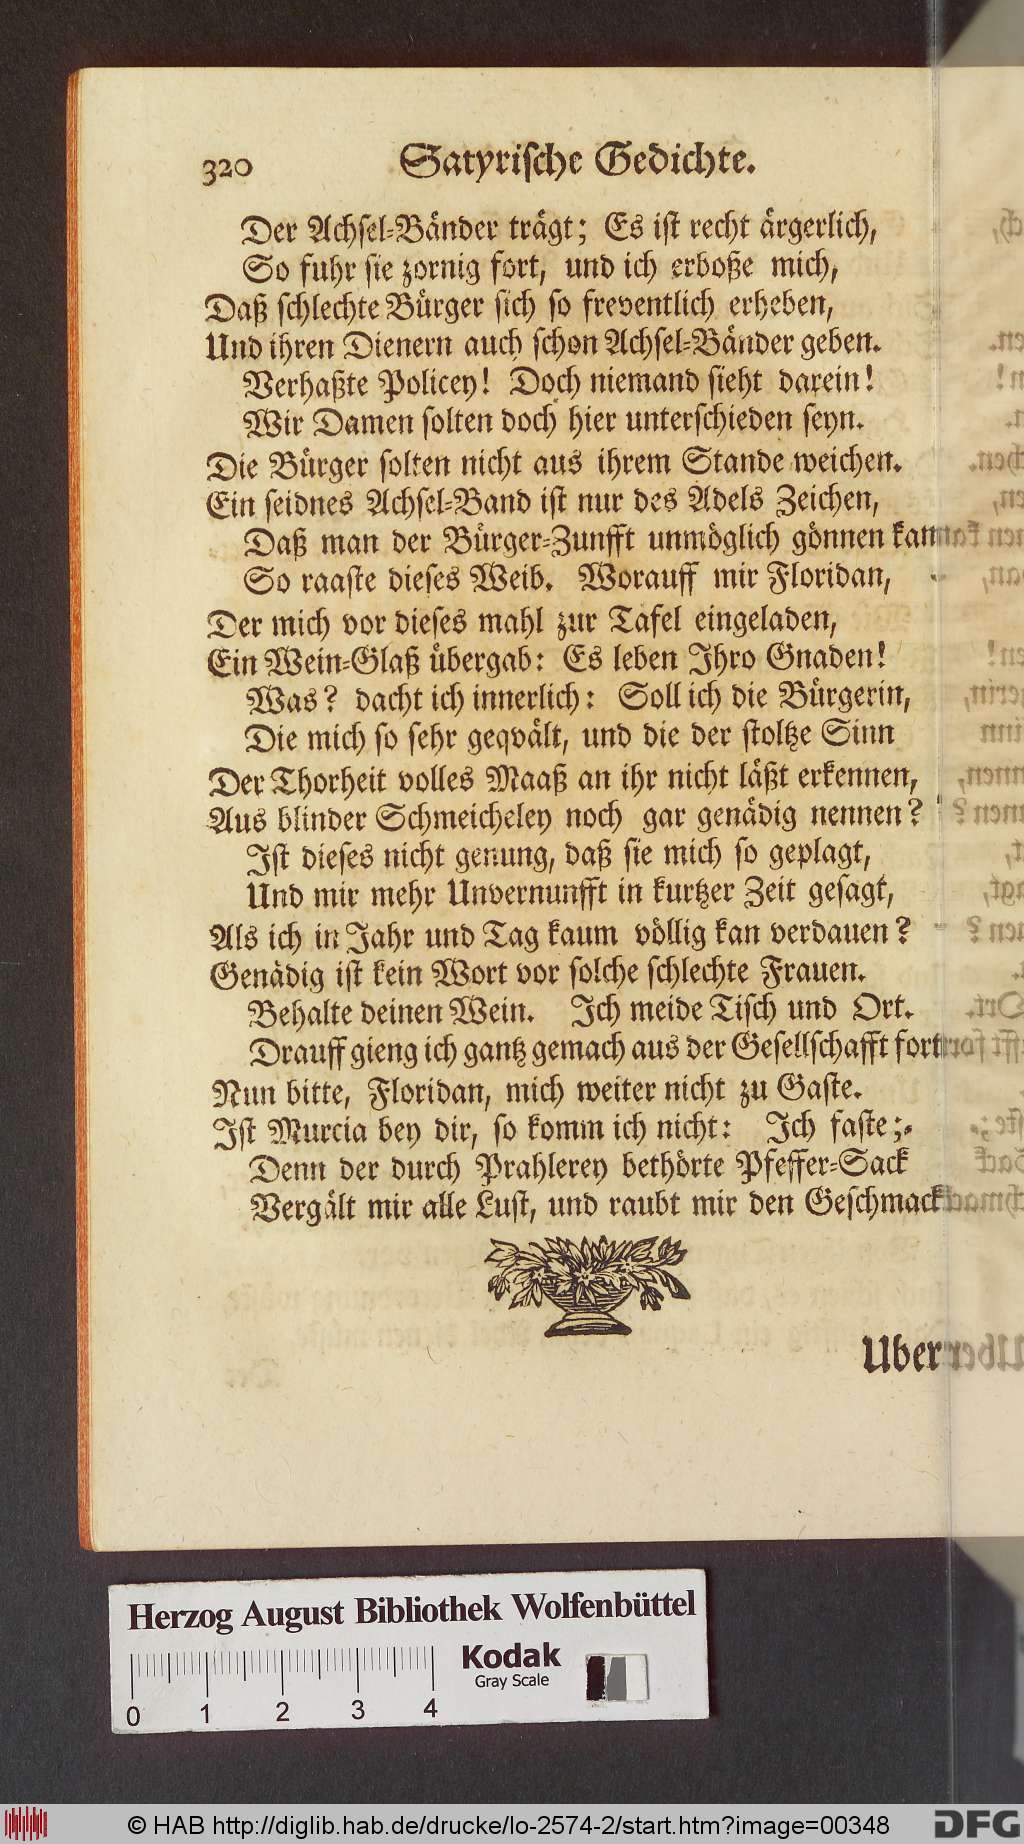 320 Satyrische Gedichte.
Der Achsel-Bänder trägt; Es ist recht ärgerlich,
So fuhr sie zornig fort, und ich erboße mich,
Daß schlechte Bürger sich so freventlich erheben,
Und ihren Dienern auch schon Achsel-Bänder geben.
Verhaßte Policey! Doch niemand sieht darein!
Wir Damen solten doch hier unterschieden seyn.
Die Bürger solten nicht aus ihrem Stande weichen.
Ein seidnes Achsel-Band ist nur des Adels Zeichen,
Daß man der Bürger-Zunfft unmöglich gönnen kan
So raaste dieses Weib. Worauff mir Floridan,
Der mich vor dieses mahl zur Tafel eingeladen,
Ein Wein-Glaß übergab: Es leben Ihro Gnaden!
Was? dacht ich innerlich: Soll ich die Bürgerin,
Die mich so sehr geqvält, und die der stoltze Sinn
Der Thorheit volles Maaß an ihr nicht läßt erkennen,
Aus blinder Schmeicheley noch gar genädig nennen?
Ist dieses nicht genung, daß sie mich so geplagt,
Und mir mehr Unvernunfft in kurtzer Zeit gesagt,
Als ich in Jahr und Tag kaum völlig kan verdauen?
Genädig ist kein Wort vor solche schlechte Frauen.
Behalte deinen Wein. Ich meide Tisch und Ort.
Drauff gieng ich gantz gemach aus der Gesellschafft fort
Nun bitte, Floridan, mich weiter nicht zu Gaste.
Ist Murcia bey dir, so komm ich nicht: Ich faste;
Denn der durch Prahlerey bethörte Pfeffer-Sack
Vergält mir alle Lust, und raubt mir den Geschmack
Uber
Herzog August Bibliothek Wolfenbüttel
Kodak
Gray Scale
0 1 2 3 4
© HAB http://diglib.hab.de/drucke/lo-2574-2/start.htm?image=00348
DFG